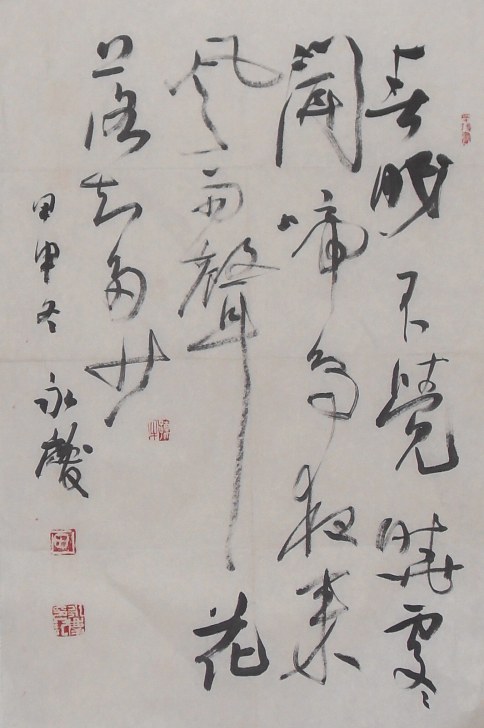 春眠不覺曉處々
聞啼鳥夜来
風雨聲花
落知多少
甲申冬 永慶